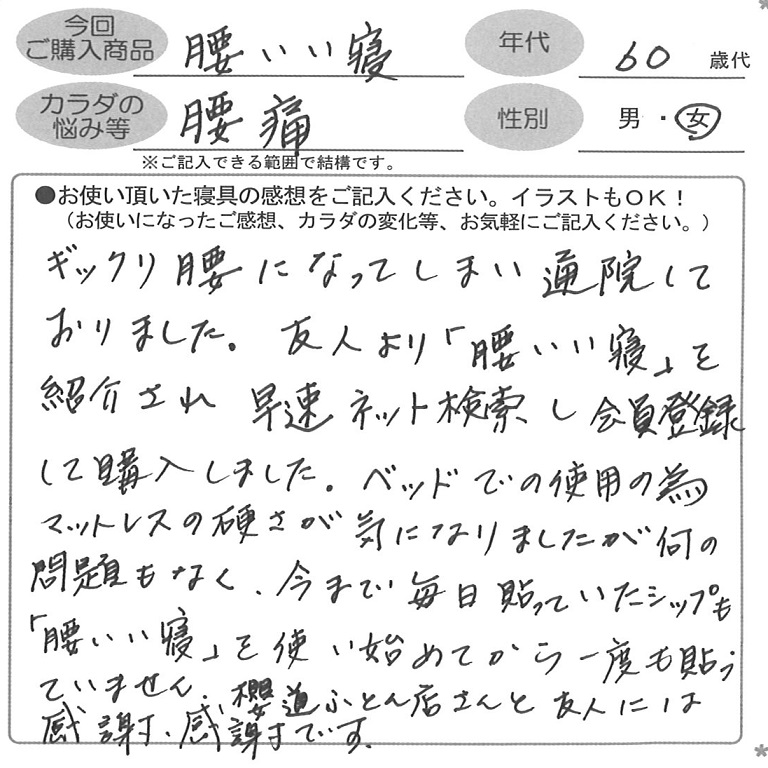 今回
ご購入商品
腰いい寝
年代
60 歳代
カラダの
悩み等
腰痛
性別
男・女
※ご記入できる範囲で結構です。
●お使い頂いた寝具の感想をご記入ください。イラストもOK！
（お使いになったご感想、カラダの変化等、お気軽にご記入ください。）
ギックリ腰になってしまい通院して
おりました。友人より「腰いい寝」を
紹介され早速ネット検索し会員登録
して購入しました。ベッドでの使用の為
マットレスの硬さが気になりましたが何の
問題もなく、今まで毎日貼っていたシップも
「腰いい寝」を使い始めてから一度も貼っ
ていません。櫻道ふとん店さんと友人には
感謝、感謝です。